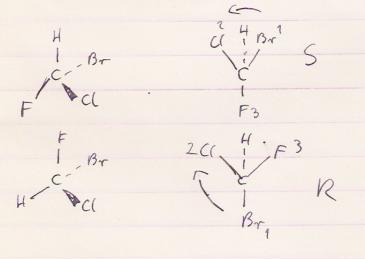 H
Br
C
F
Cl
Cl 2 H Br 1
C
F 3
S
F
Br
C
H
Cl
H
2 Cl F 3
C
Br 1
R